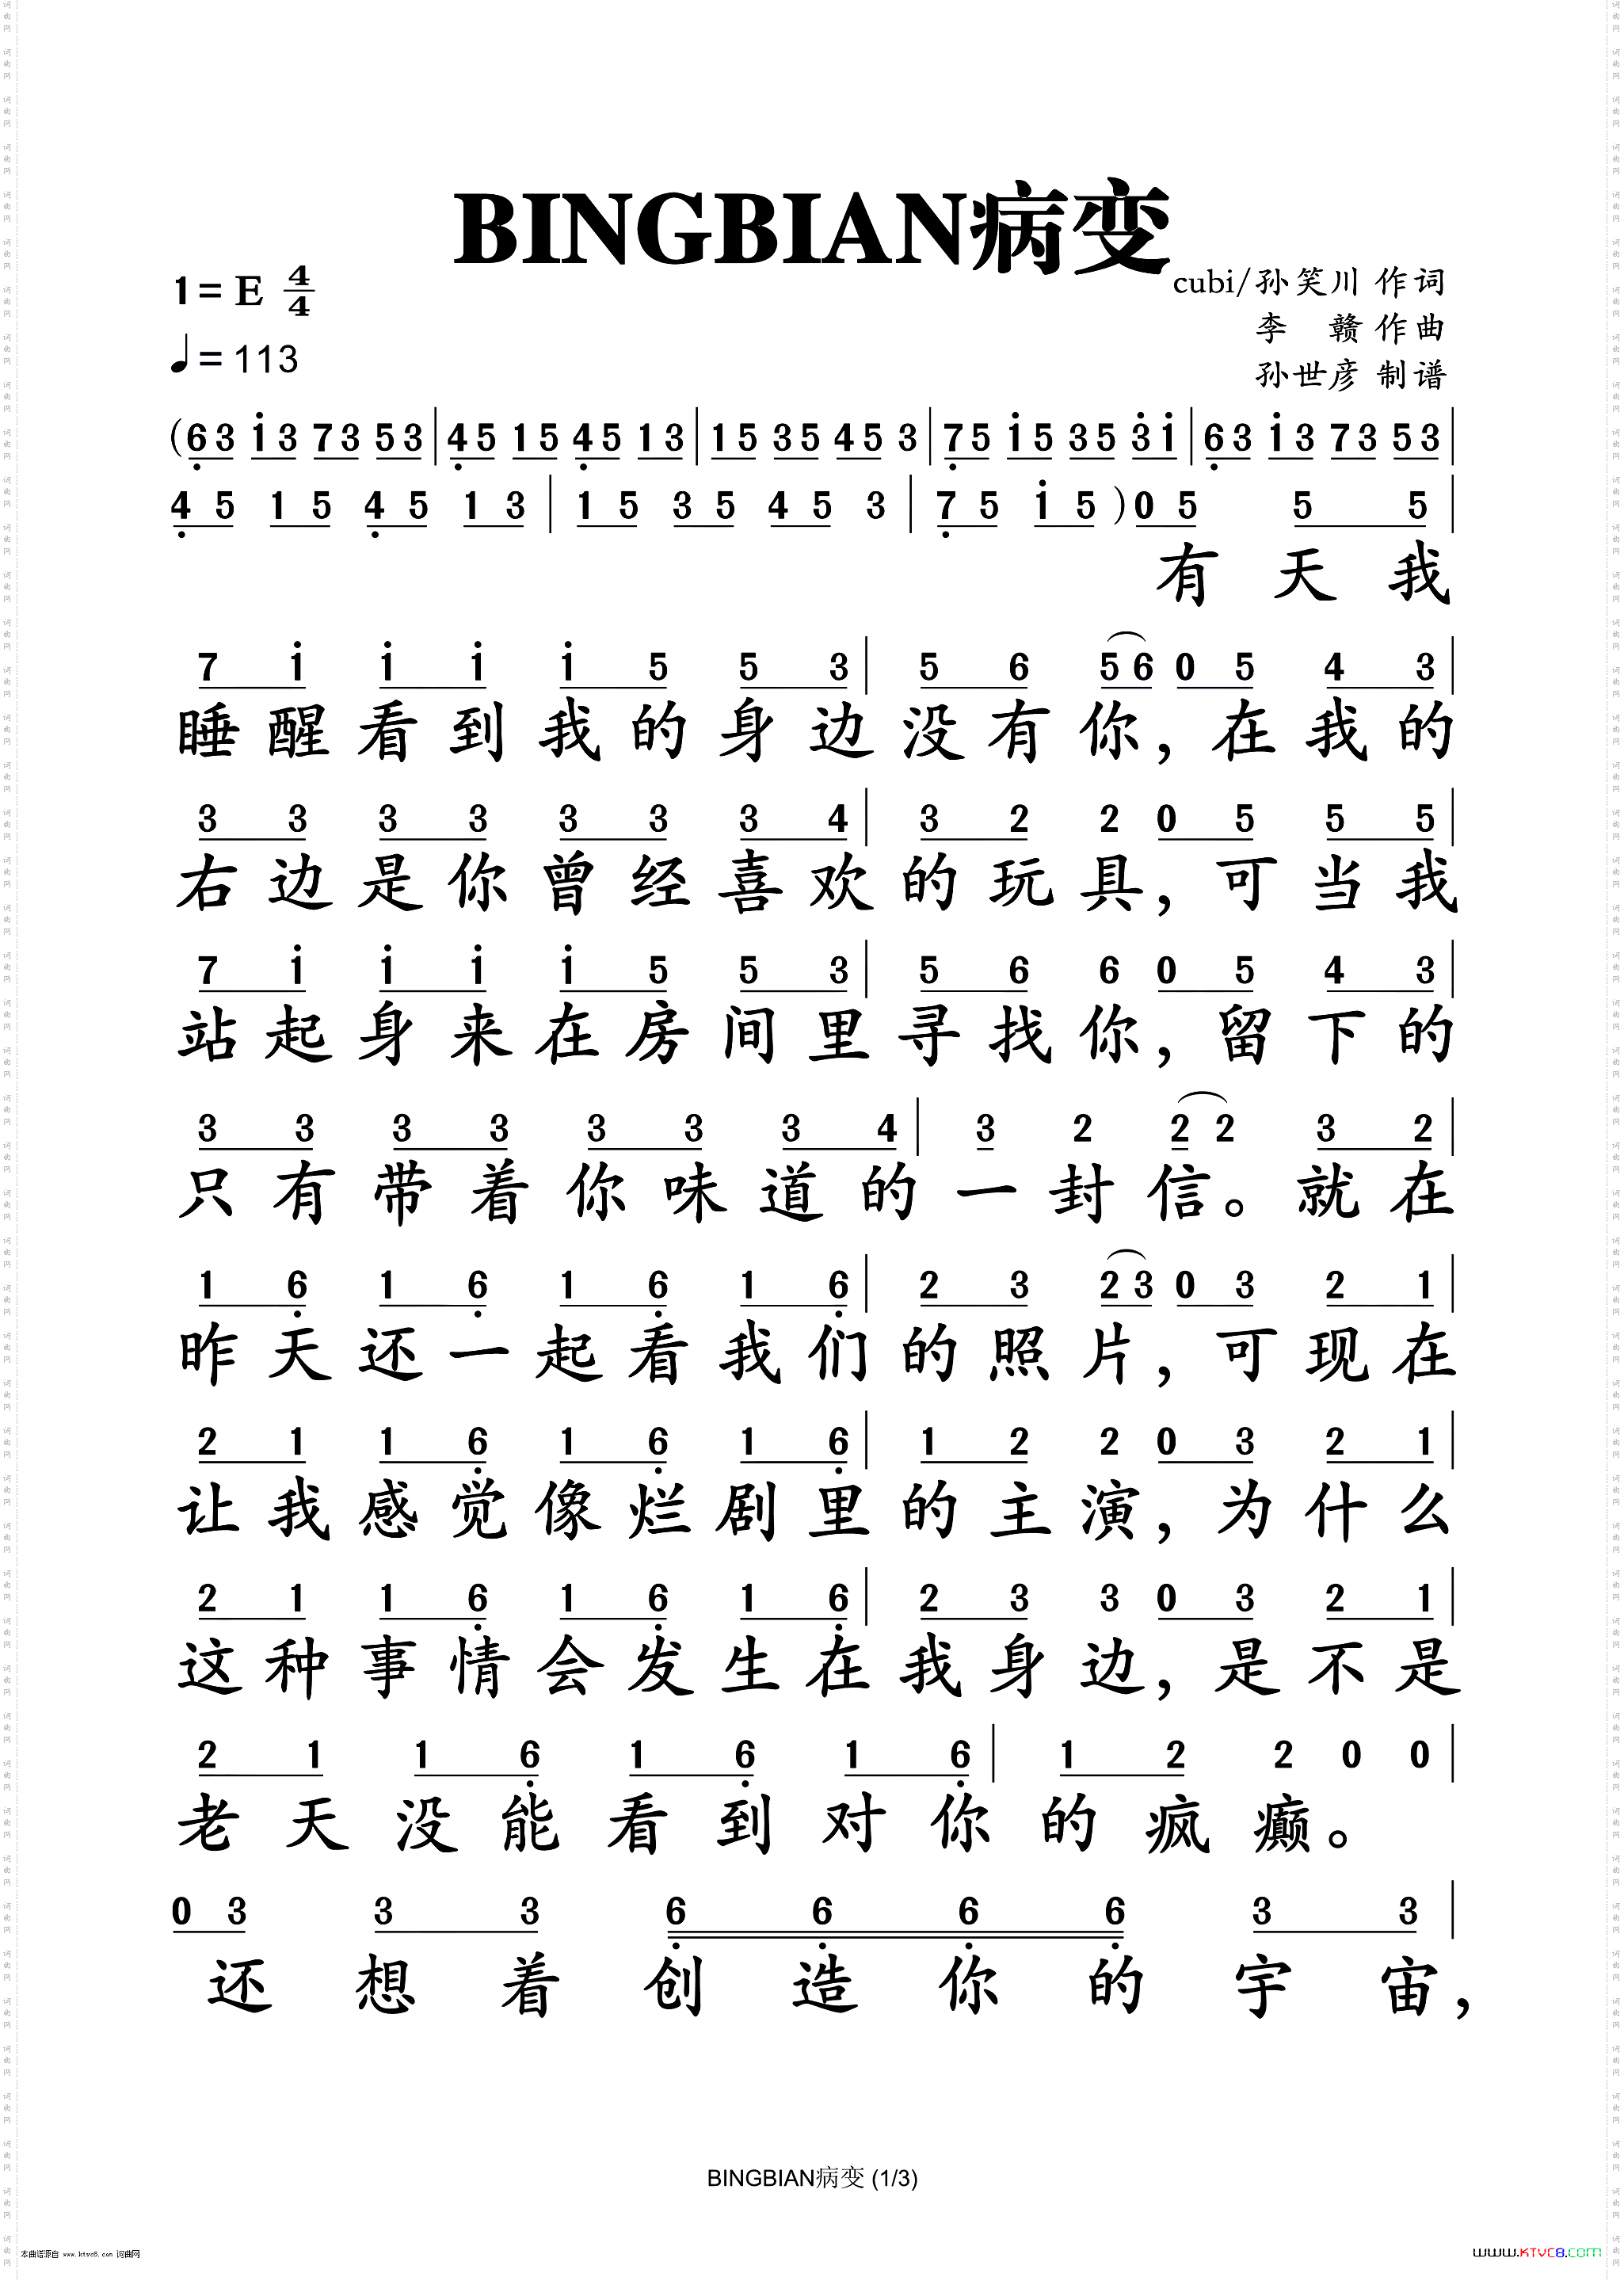 BINGBIAN病变
1= E 4/4
cubi/孙笑川 作词
李 赣 作曲
♩= 113
孙世彦 制谱
(6̣3 1̇3 73 53 | 4̣5 15 4̣5 13 | 15 35 45 3 | 7̣5 1̇5 35 3̇1̇ | 6̣3 1̇3 73 53 |
4̣ 5 1 5 4̣ 5 1 3 | 1 5 3 5 4 5 3 | 7̣ 5 1̇ 5 )0 5 5 5 |
有 天 我
7 1̇ 1̇ 1̇ 1̇ 5 5 3 | 5 6 5 6 0 5 4 3 |
睡 醒 看 到 我 的 身 边 没 有 你, 在 我 的
3 3 3 3 3 3 3 4 | 3 2 2 0 5 5 5 |
右 边 是 你 曾 经 喜 欢 的 玩 具, 可 当 我
7 1̇ 1̇ 1̇ 1̇ 5 5 3 | 5 6 6 0 5 4 3 |
站 起 身 来 在 房 间 里 寻 找 你, 留 下 的
3 3 3 3 3 3 3 4 | 3 2 2 2 3 2 |
只 有 带 着 你 味 道 的 一 封 信。 就 在
1 6̣ 1 6̣ 1 6̣ 1 6̣ | 2 3 2 3 0 3 2 1 |
昨 天 还 一 起 看 我 们 的 照 片, 可 现 在
2 1 1 6̣ 1 6̣ 1 6̣ | 1 2 2 0 3 2 1 |
让 我 感 觉 像 烂 剧 里 的 主 演, 为 什 么
2 1 1 6̣ 1 6̣ 1 6̣ | 2 3 3 0 3 2 1 |
这 种 事 情 会 发 生 在 我 身 边, 是 不 是
2 1 1 6̣ 1 6̣ 1 6̣ | 1 2 2 0 0 |
老 天 没 能 看 到 对 你 的 疯 癫。
0 3 3 3 6̣ 6̣ 6̣ 6̣ 3 3 |
还 想 着 创 造 你 的 宇 宙,
BINGBIAN病变 (1/3)
本曲谱源自 www.ktvc8.com 词曲网
www.KTVC8.com